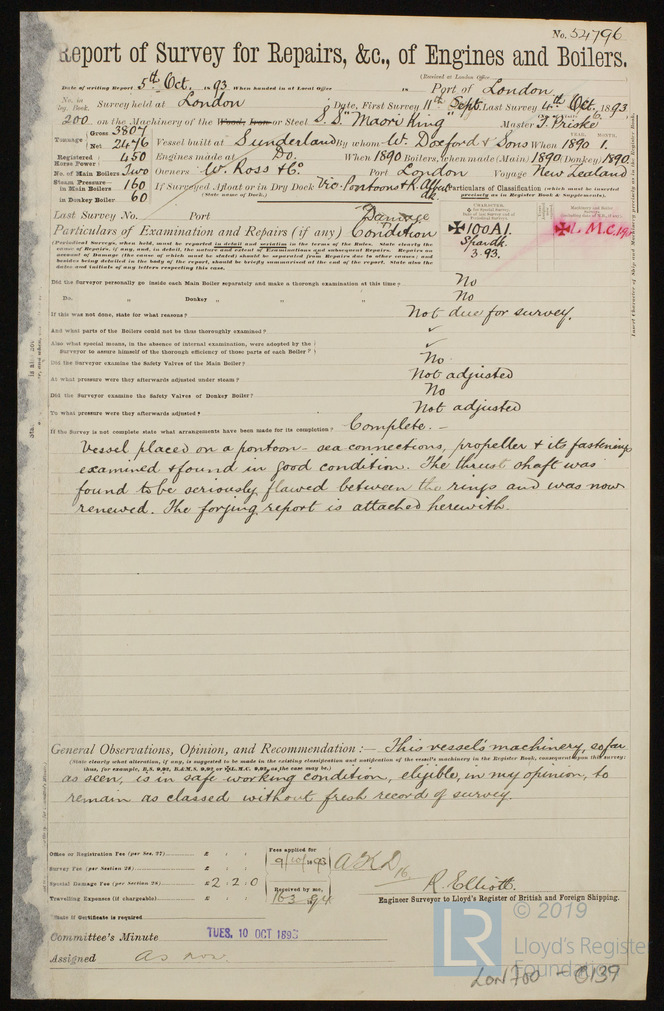 No. 54796
Report of Survey for Repairs, &c., of Engines and Boilers.
(Received at London Office
Date of writing Report 5th Oct. 1893 When handed in at Local Office 18 Port of London
No. in Reg. Book. Survey held at London Date, First Survey 11th Sept. Last Survey 4th Oct. 1893
200 on the Machinery of the Wood, Iron or Steel S.S. "Maori King" Master T. Priske
Tonnage Gross 3807 Net 2476 Vessel built at Sunderland By whom W. Doxford & Sons When 1890 1.
Registered Horse Power 450 Engines made at Do. When 1890 Boilers, when made (Main) 1890 (Donkey) 1890
No. of Main Boilers Two Owners W. Ross & Co. Port London Voyage New Zealand
Steam Pressure in Main Boilers 160 If Surveyed Afloat or in Dry Dock Vic. Pontoons & R. Albert dk.
(State name of Dock.)
in Donkey Boiler 60
Particulars of Classification (which must be inserted precisely as in Register Book & Supplements).
Last Survey No. Port
Particulars of Examination and Repairs (if any) Damage Condition
✠100A1.
3.93.
✠L.M.C.
(Periodical Surveys, when held, must be reported in detail and seriatim in the terms of the Rules. State clearly the
cause of Repairs, if any, and, in detail, the nature and extent of Examinations and subsequent Repairs. Repairs on
account of Damage (the cause of which must be stated) should be separated from Repairs due to other causes; and
besides being detailed in the body of the report, should be briefly summarised at the end of the report. State also the
dates and initials of any letters respecting this case.)
Did the Surveyor personally go inside each Main Boiler separately and make a thorough examination at this time? No
Do. „ Donkey „ „ „ No
If this was not done, state for what reasons? Not due for survey.
And what parts of the Boilers could not be thus thoroughly examined? ✓
Also what special means, in the absence of internal examination, were adopted by the
Surveyor to assure himself of the thorough efficiency of those parts of each Boiler? ✓
Did the Surveyor examine the Safety Valves of the Main Boiler? No
At what pressure were they afterwards adjusted under steam? Not adjusted
Did the Surveyor examine the Safety Valves of Donkey Boiler? No
To what pressure were they afterwards adjusted? Not adjusted
If the Survey is not complete state what arrangements have been made for its completion? Complete. -
Vessel placed on a pontoon - sea connections, propeller & its fastenings
examined & found in good condition. The thrust shaft was
found to be seriously flawed between the rings and was now
renewed. The forging report is attached herewith.
General Observations, Opinion, and Recommendation :— This vessel's machinery, so far
(State clearly what alteration, if any, is suggested to be made in the existing classification and notification of the vessel's machinery in the Register Book, consequent upon this survey:
thus, for example, B.S. 9,92, B.&M.S. 9,92 or ✠L.M.C. 9,92, as the case may be.)
as seen, is in safe working condition, eligible, in my opinion, to
remain as classed without fresh record of survey.
Office or Registration Fee (per Sec. 27) £ : :
Survey Fee (per Section 28) £ : :
Special Damage Fee (per Section 28) £ 2 : 2 : 0
Travelling Expenses (if chargeable) £ : :
Fees applied for
9/10/1893
Received by me,
A.K.D.
R. Elliott.
Engineer Surveyor to Lloyd's Register of British and Foreign Shipping.
State if Certificate is required
Committee's Minute TUES. 10 OCT 1893
Assigned as now.
LR
© 2019
Lloyd's Register
Foundation
LON700 - 0139